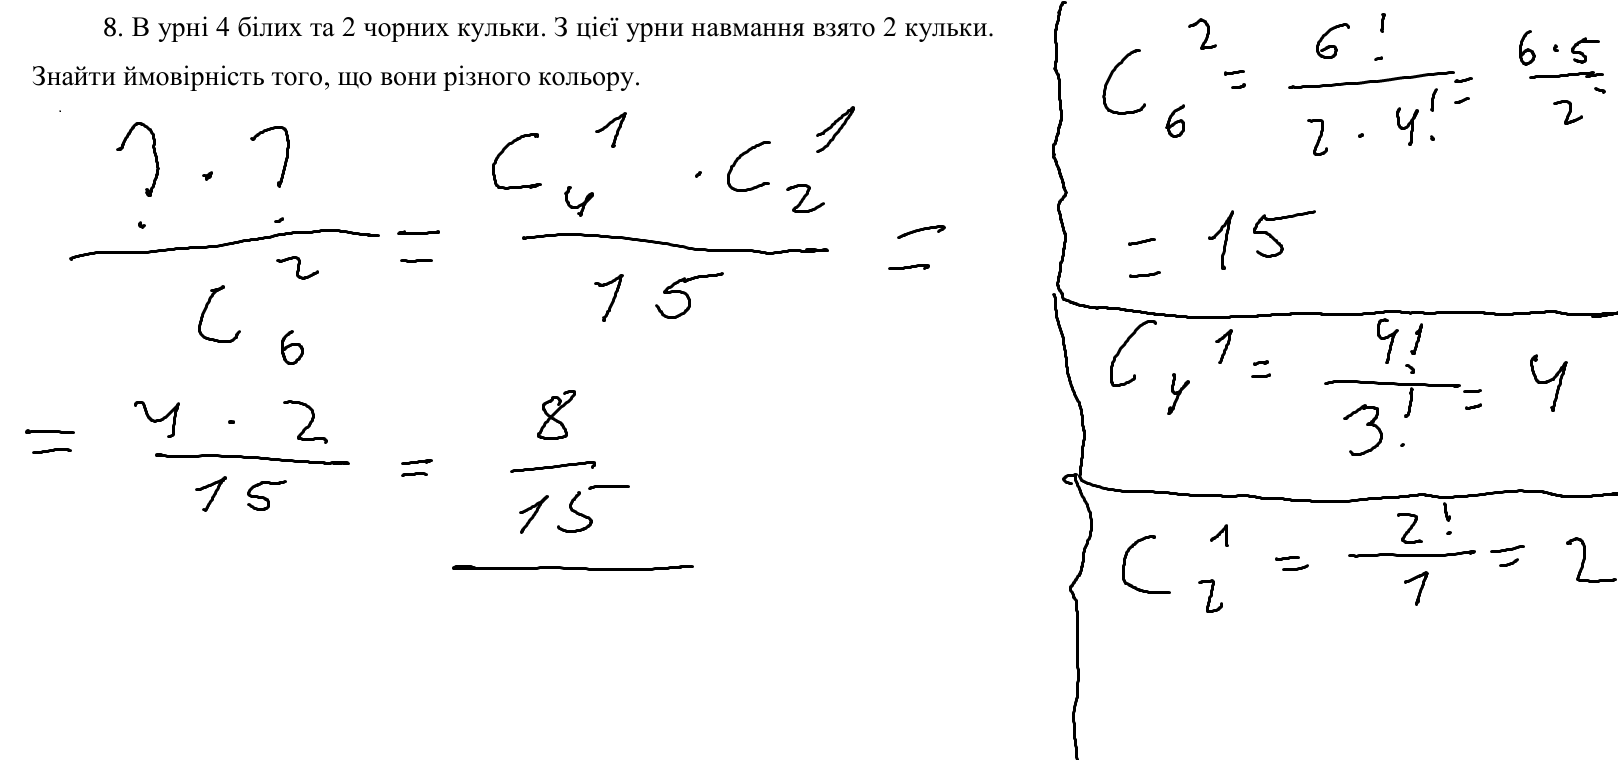 8. В урні 4 білих та 2 чорних кульки. З цієї урни навмання взято 2 кульки.
Знайти ймовірність того, що вони різного кольору.
? · ? / C₆² = C₄¹ · C₂¹ / 15 =
= 4 · 2 / 15 = 8 / 15
C₆² = 6! / 2 · 4! = 6 · 5 / 2 =
= 15
C₄¹ = 4! / 3! = 4
C₂¹ = 2! / 1 = 2